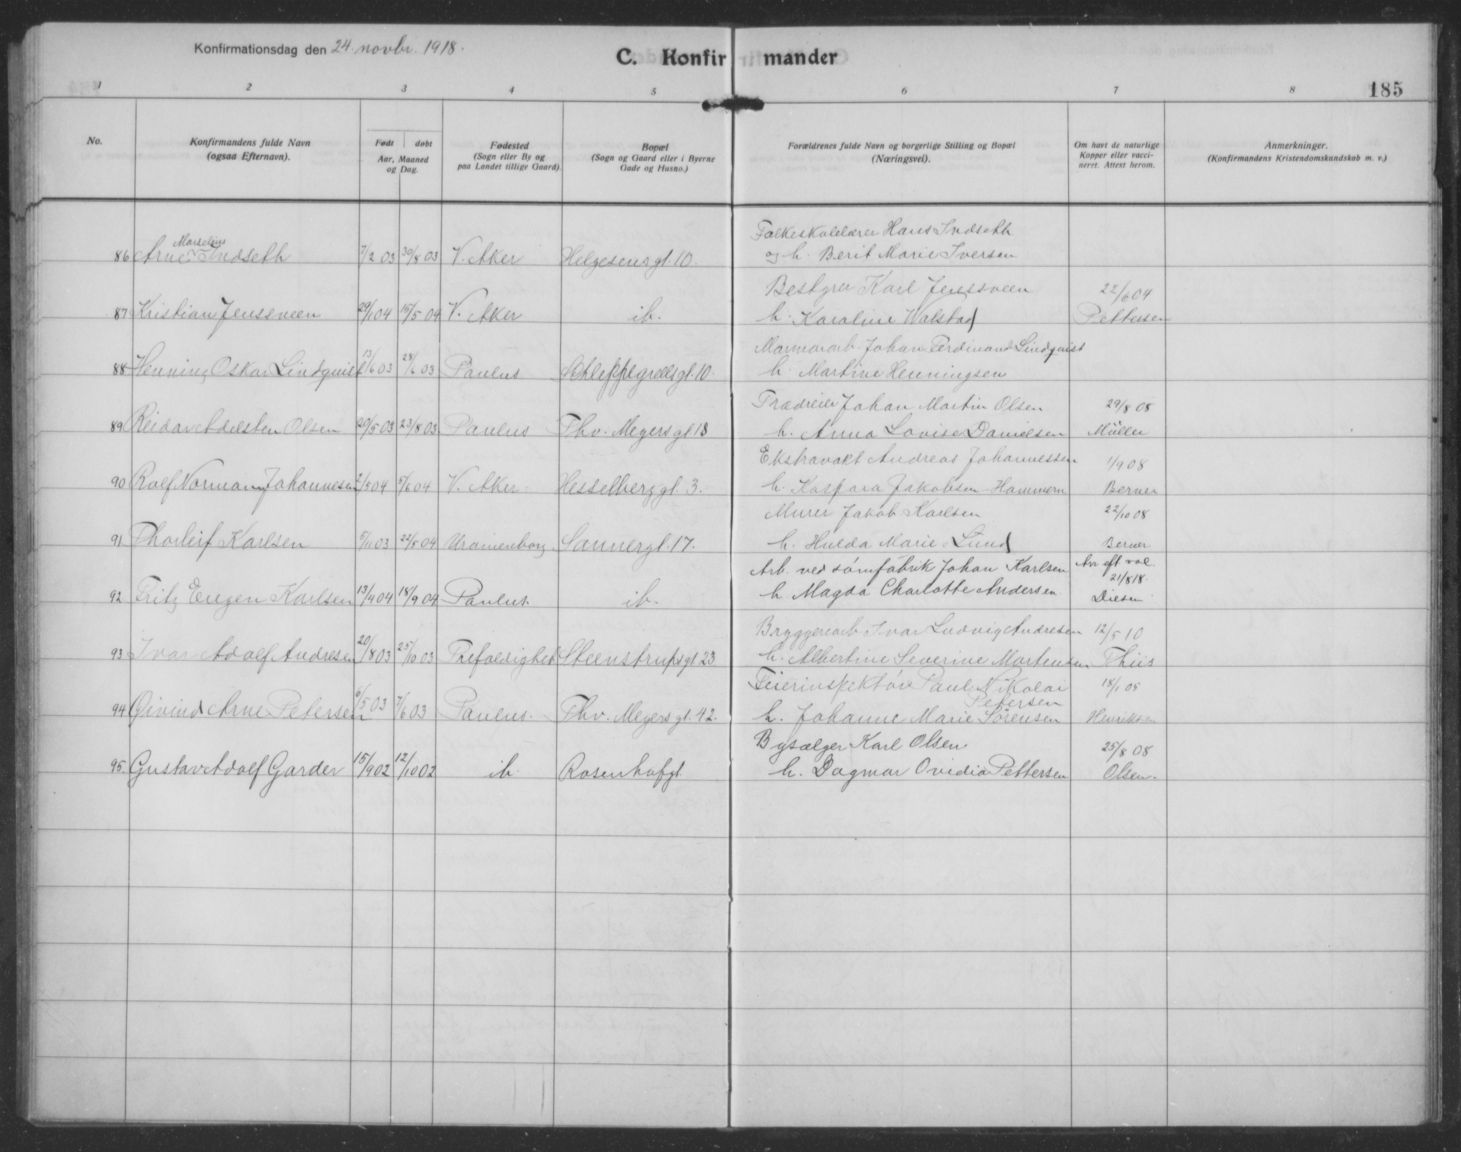 Konfirmationsdag den 24 novbr. 1918.
C. Konfirmander
185
1 2 3 4 5 6 7 8
No.
Konfirmandens fulde Navn
(ogsaa Efternavn).
Født døbt
Aar, Maaned
og Dag.
Fødested
(Sogn eller By og
paa Landet tillige Gaard).
Bopæl
(Sogn og Gaard eller i Byerne
Gade og Husno.)
Forældrenes fulde Navn og borgerlige Stilling og Bopæl
(Næringsvei).
Om havt de naturlige
Kopper eller vacci-
neret. Attest herom.
Anmerkninger.
(Konfirmandens Kristendomskundskab m. v.)
Folkeskolelærer Hans Indseth
Marselius
86 Arne Indseth 7/2 03 30/8 03 V. Aker Helgesensgt. 10. og h. Berit Marie Iversen
Bestyrer Karl Jenssveen 22/6 04
87 Kristian Jenssveen 29/1 04 15/5 04 V. Aker ib. h. Karoline Walstad Pettersen
Marmorarb. Johan Ferdinand Lindquist
88 Henning Oskar Lindquist 13/6 03 28/6 03 Paulus Schleppegrellsgt. 10. h. Martine Henningsen
Trædreier Johan Martin Olsen 29/8 08
89 Reidar Adelsten Olsen 20/5 03 23/8 03 Paulus Thv. Meyersgt 18 h. Anna Lovise Danielsen Müller
Ekstravakt Andreas Johannessen 1/9 08
90 Rolf Norman Johannesen 2/1 04 5/6 04 V. Aker Hesselberggt. 3. h. Kaspara Jakobsen Hammern Berner
Murer Jakob Karlsen 22/10 08
91 Thorleif Karlsen 5/11 03 22/5 04 Uranienborg Sannergt. 17. h. Hulda Marie Lund Berner
Arb. ved sømfabrik Johan Karlsen Arr eft vac.
21/8 18.
92 Fritz Eugen Karlsen 13/4 04 18/9 04 Paulus ib. h. Magda Charlotte Andersen Diesen
Bryggeriarb Ivar Ludvig Andresen 12/5 10
93 Ivar Adolf Andresen 20/8 03 25/10 03 Trefoldighet Steenstrupsgt 23 h. Albertine Severine Mortensen Thiis
Feierinspektør Paul Nikolai 18/1 05
Petersen
94 Øivind Arne Petersen 6/5 03 7/6 03 Paulus. Thv. Meyersgt. 42. h. Johanne Marie Sørensen Henriksen
Bysælger Karl Olsen 25/8 08
95. Gustav Adolf Garder 15/9 02 12/10 02 ib. Rosenhofgt h. Dagmar Ovidia Pettersen Olsen.